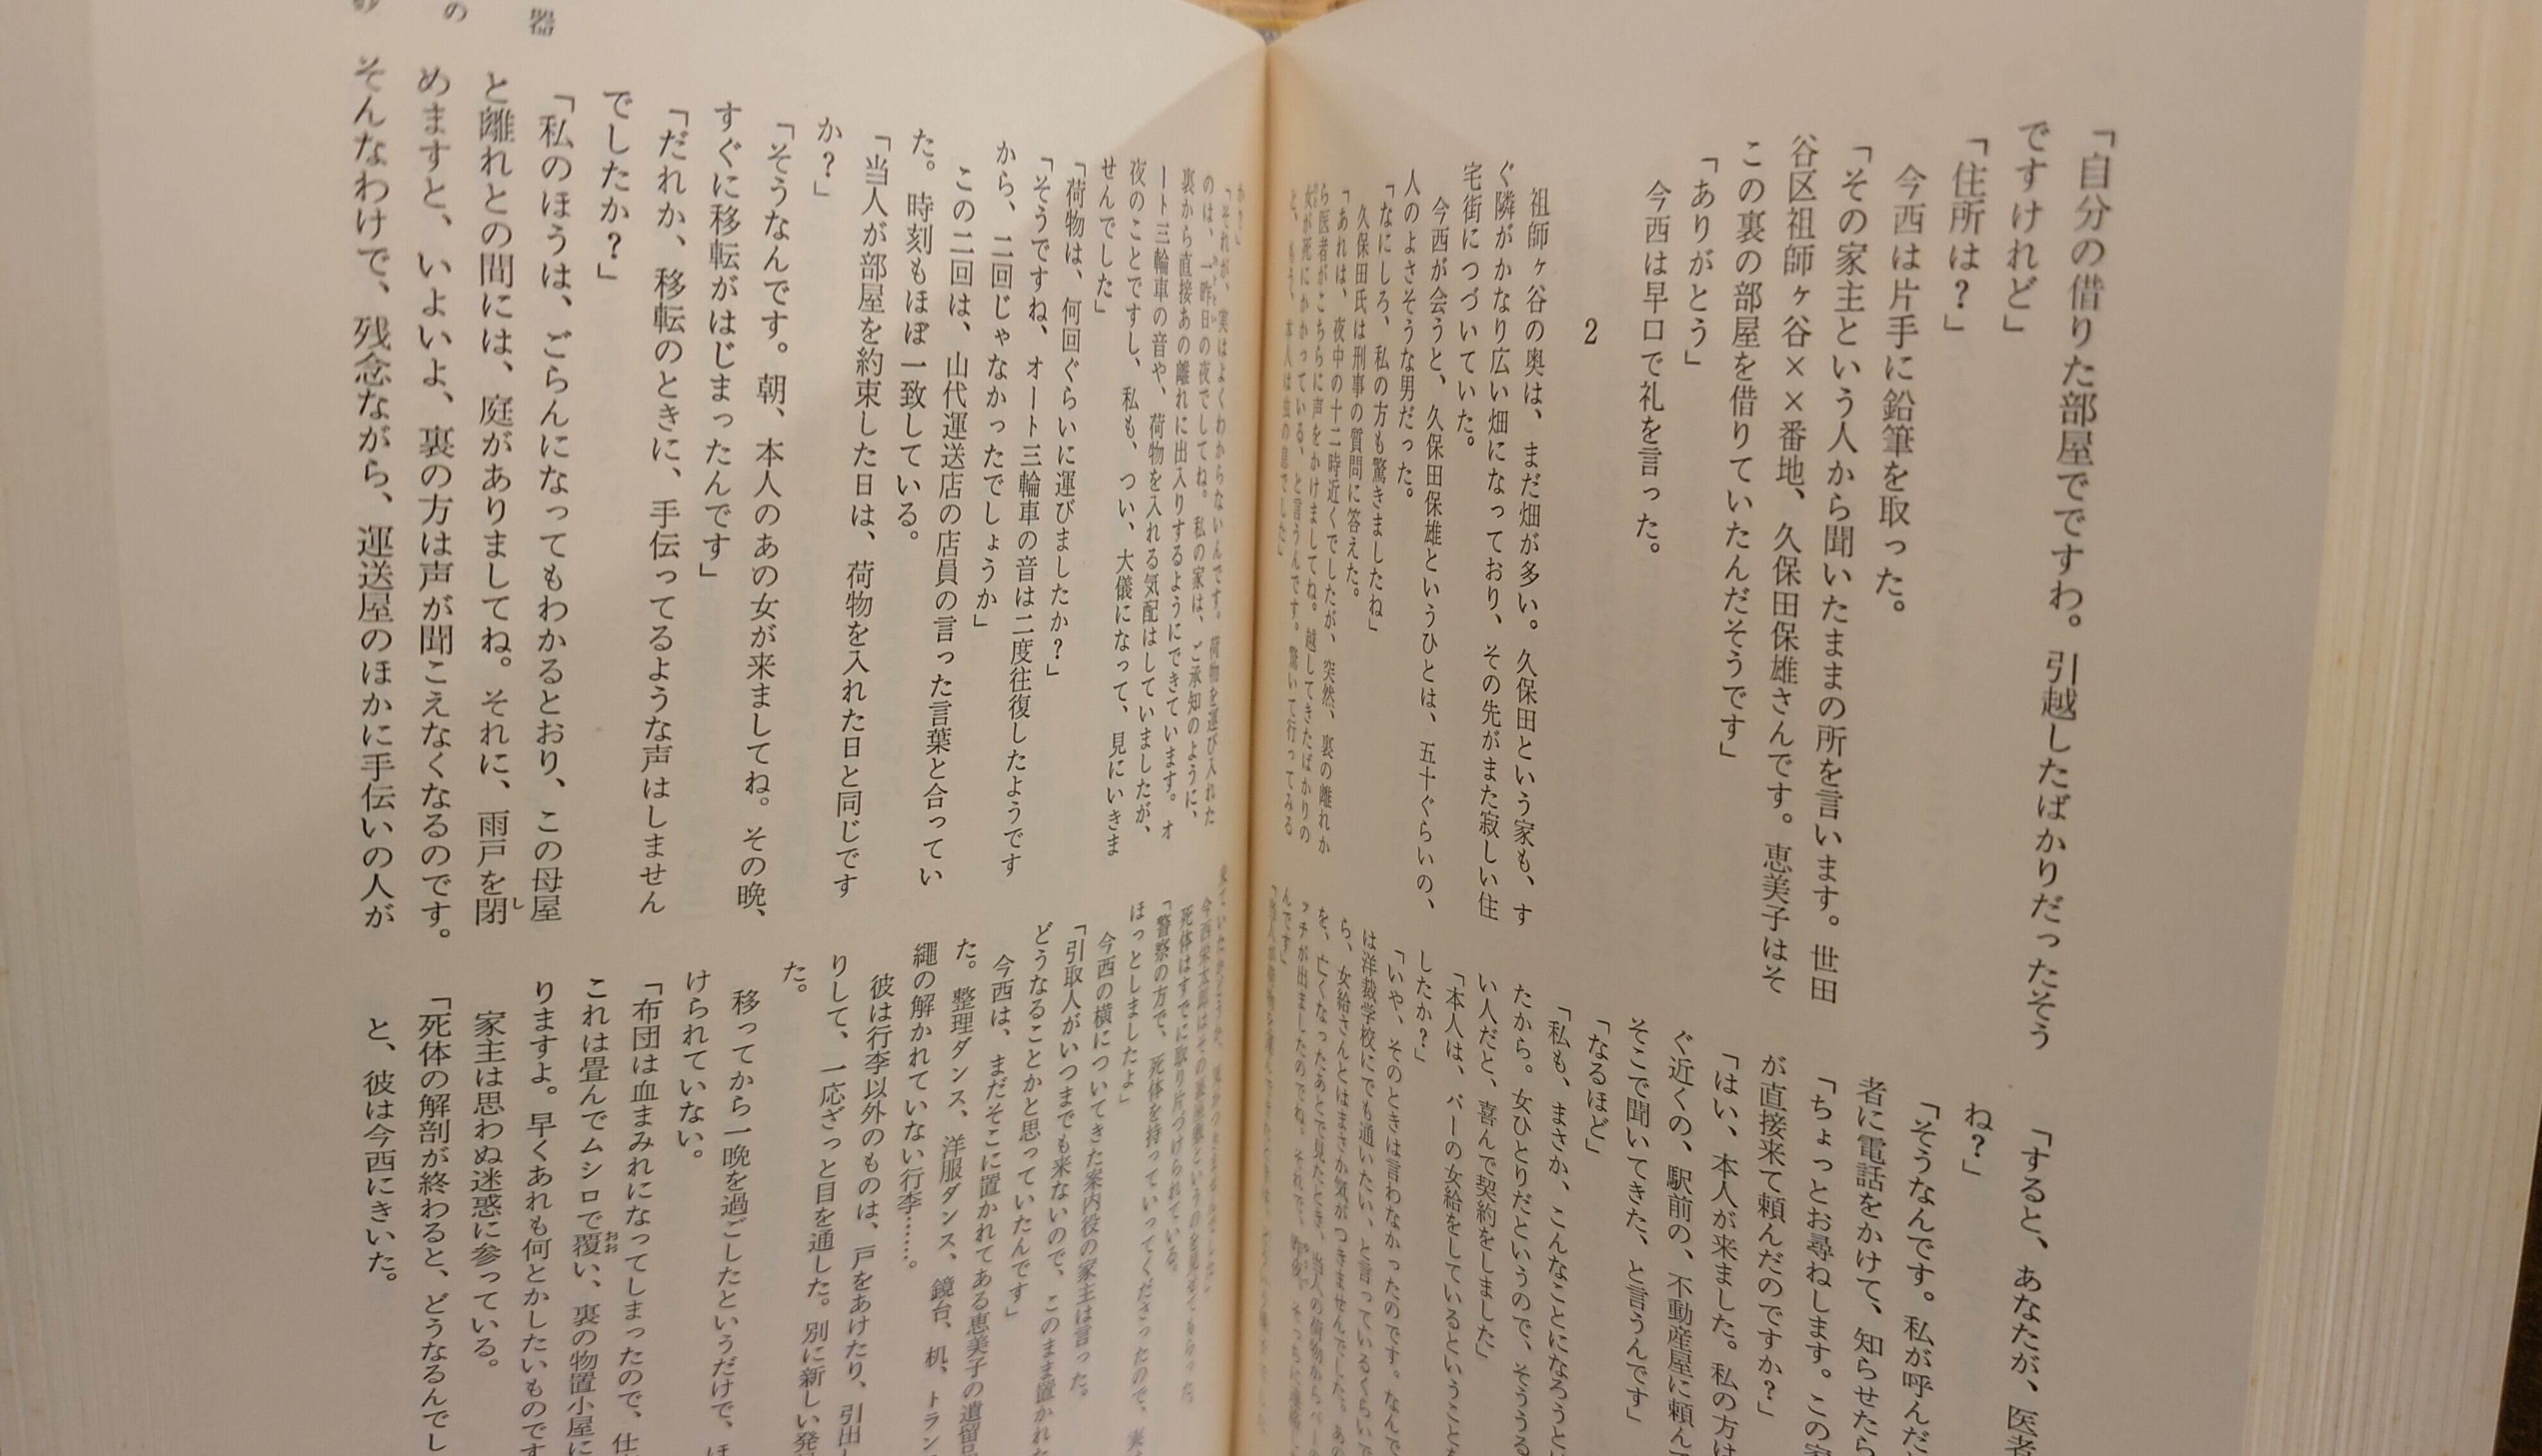 「自分の借りた部屋でですわ。引越したばかりだったそう
ですけれど」
「住所は？」
今西は片手に鉛筆を取った。
「その家主という人から聞いたままの所を言います。世田
谷区祖師ヶ谷××番地、久保田保雄さんです。恵美子はそ
この裏の部屋を借りていたんだそうです」
「ありがとう」
今西は早口で礼を言った。
2
祖師ヶ谷の奥は、まだ畑が多い。久保田という家も、す
ぐ隣がかなり広い畑になっており、その先がまた寂しい住
宅街につづいていた。
今西が会うと、久保田保雄というひとは、五十ぐらいの、
人のよさそうな男だった。
「なにしろ、私の方も驚きましたね」
久保田氏は刑事の質問に答えた。
「あれは、夜中の十二時近くでしたが、突然、裏の離れか
ら医者がこちらに声をかけましてね。越してきたばかりの
女が死にかかっている、と言うんです。驚いて行ってみる
と、もう、本人は虫の息でした」
「すると、あなたが、医者
ね？」
「そうなんです。私が呼んだ
者に電話をかけて、知らせたら
「ちょっとお尋ねします。この家
が直接来て頼んだのですか？」
「はい、本人が来ました。私の方は
ぐ近くの、駅前の、不動産屋に頼んで
そこで聞いてきた、と言うんです」
「なるほど」
「私も、まさか、こんなことになろうと
たから。女ひとりだというので、そううる
い人だと、喜んで契約をしました」
「本人は、バーの女給をしているということを
したか？」
「いや、そのときは言わなかったのです。なんで
は洋裁学校にでも通いたい、と言っているくらいで
ら、女給さんとはまさか気がつきませんでした。あの
を、亡くなったあとで見たとき、当人の荷物からバーの
ッチが出ましたのでね。それで、
んです」
か？」
「それが、実はよくわからないんです。荷物を運び入れた
のは、一昨日の夜でしてね。私の家は、ご承知のように、
裏から直接あの離れに出入りするようにできています。オ
ート三輪車の音や、荷物を入れる気配はしていましたが、
夜のことですし、私も、つい、大儀になって、見にいきま
せんでした」
「荷物は、何回ぐらいに運びましたか？」
「そうですね、オート三輪車の音は二度往復したようです
から、二回じゃなかったでしょうか」
この二回は、山代運送店の店員の言った言葉と合ってい
た。時刻もほぼ一致している。
「当人が部屋を約束した日は、荷物を入れた日と同じです
か？」
「そうなんです。朝、本人のあの女が来ましてね。その晩、
すぐに移転がはじまったんです」
「だれか、移転のときに、手伝ってるような声はしません
でしたか？」
「私のほうは、ごらんになってもわかるとおり、この母屋
と離れとの間には、庭がありましてね。それに、雨戸を閉し
めますと、いよいよ、裏の方は声が聞こえなくなるのです。
そんなわけで、残念ながら、運送屋のほかに手伝いの人が
死体はすでに取り片づけられている。
「警察の方で、死体を持っていってくださったので、実
ほっとしましたよ」
今西の横についてきた案内役の家主は言った。
「引取人がいつまでも来ないので、このまま置かれた
どうなることかと思っていたんです」
今西は、まだそこに置かれてある恵美子の遺留品
た。整理ダンス、洋服ダンス、鏡台、机、トラン
縄の解かれていない行李……。
彼は行李以外のものは、戸をあけたり、引出し
りして、一応ざっと目を通した。別に新しい発
た。
移ってから一晩を過ごしたというだけで、ほ
けられていない。
「布団は血まみれになってしまったので、仕
これは畳んでムシロで覆おおい、裏の物置小屋に
りますよ。早くあれも何とかしたいものです
家主は思わぬ迷惑に参っている。
「死体の解剖が終わると、どうなるんでし
と、彼は今西にきいた。
の器